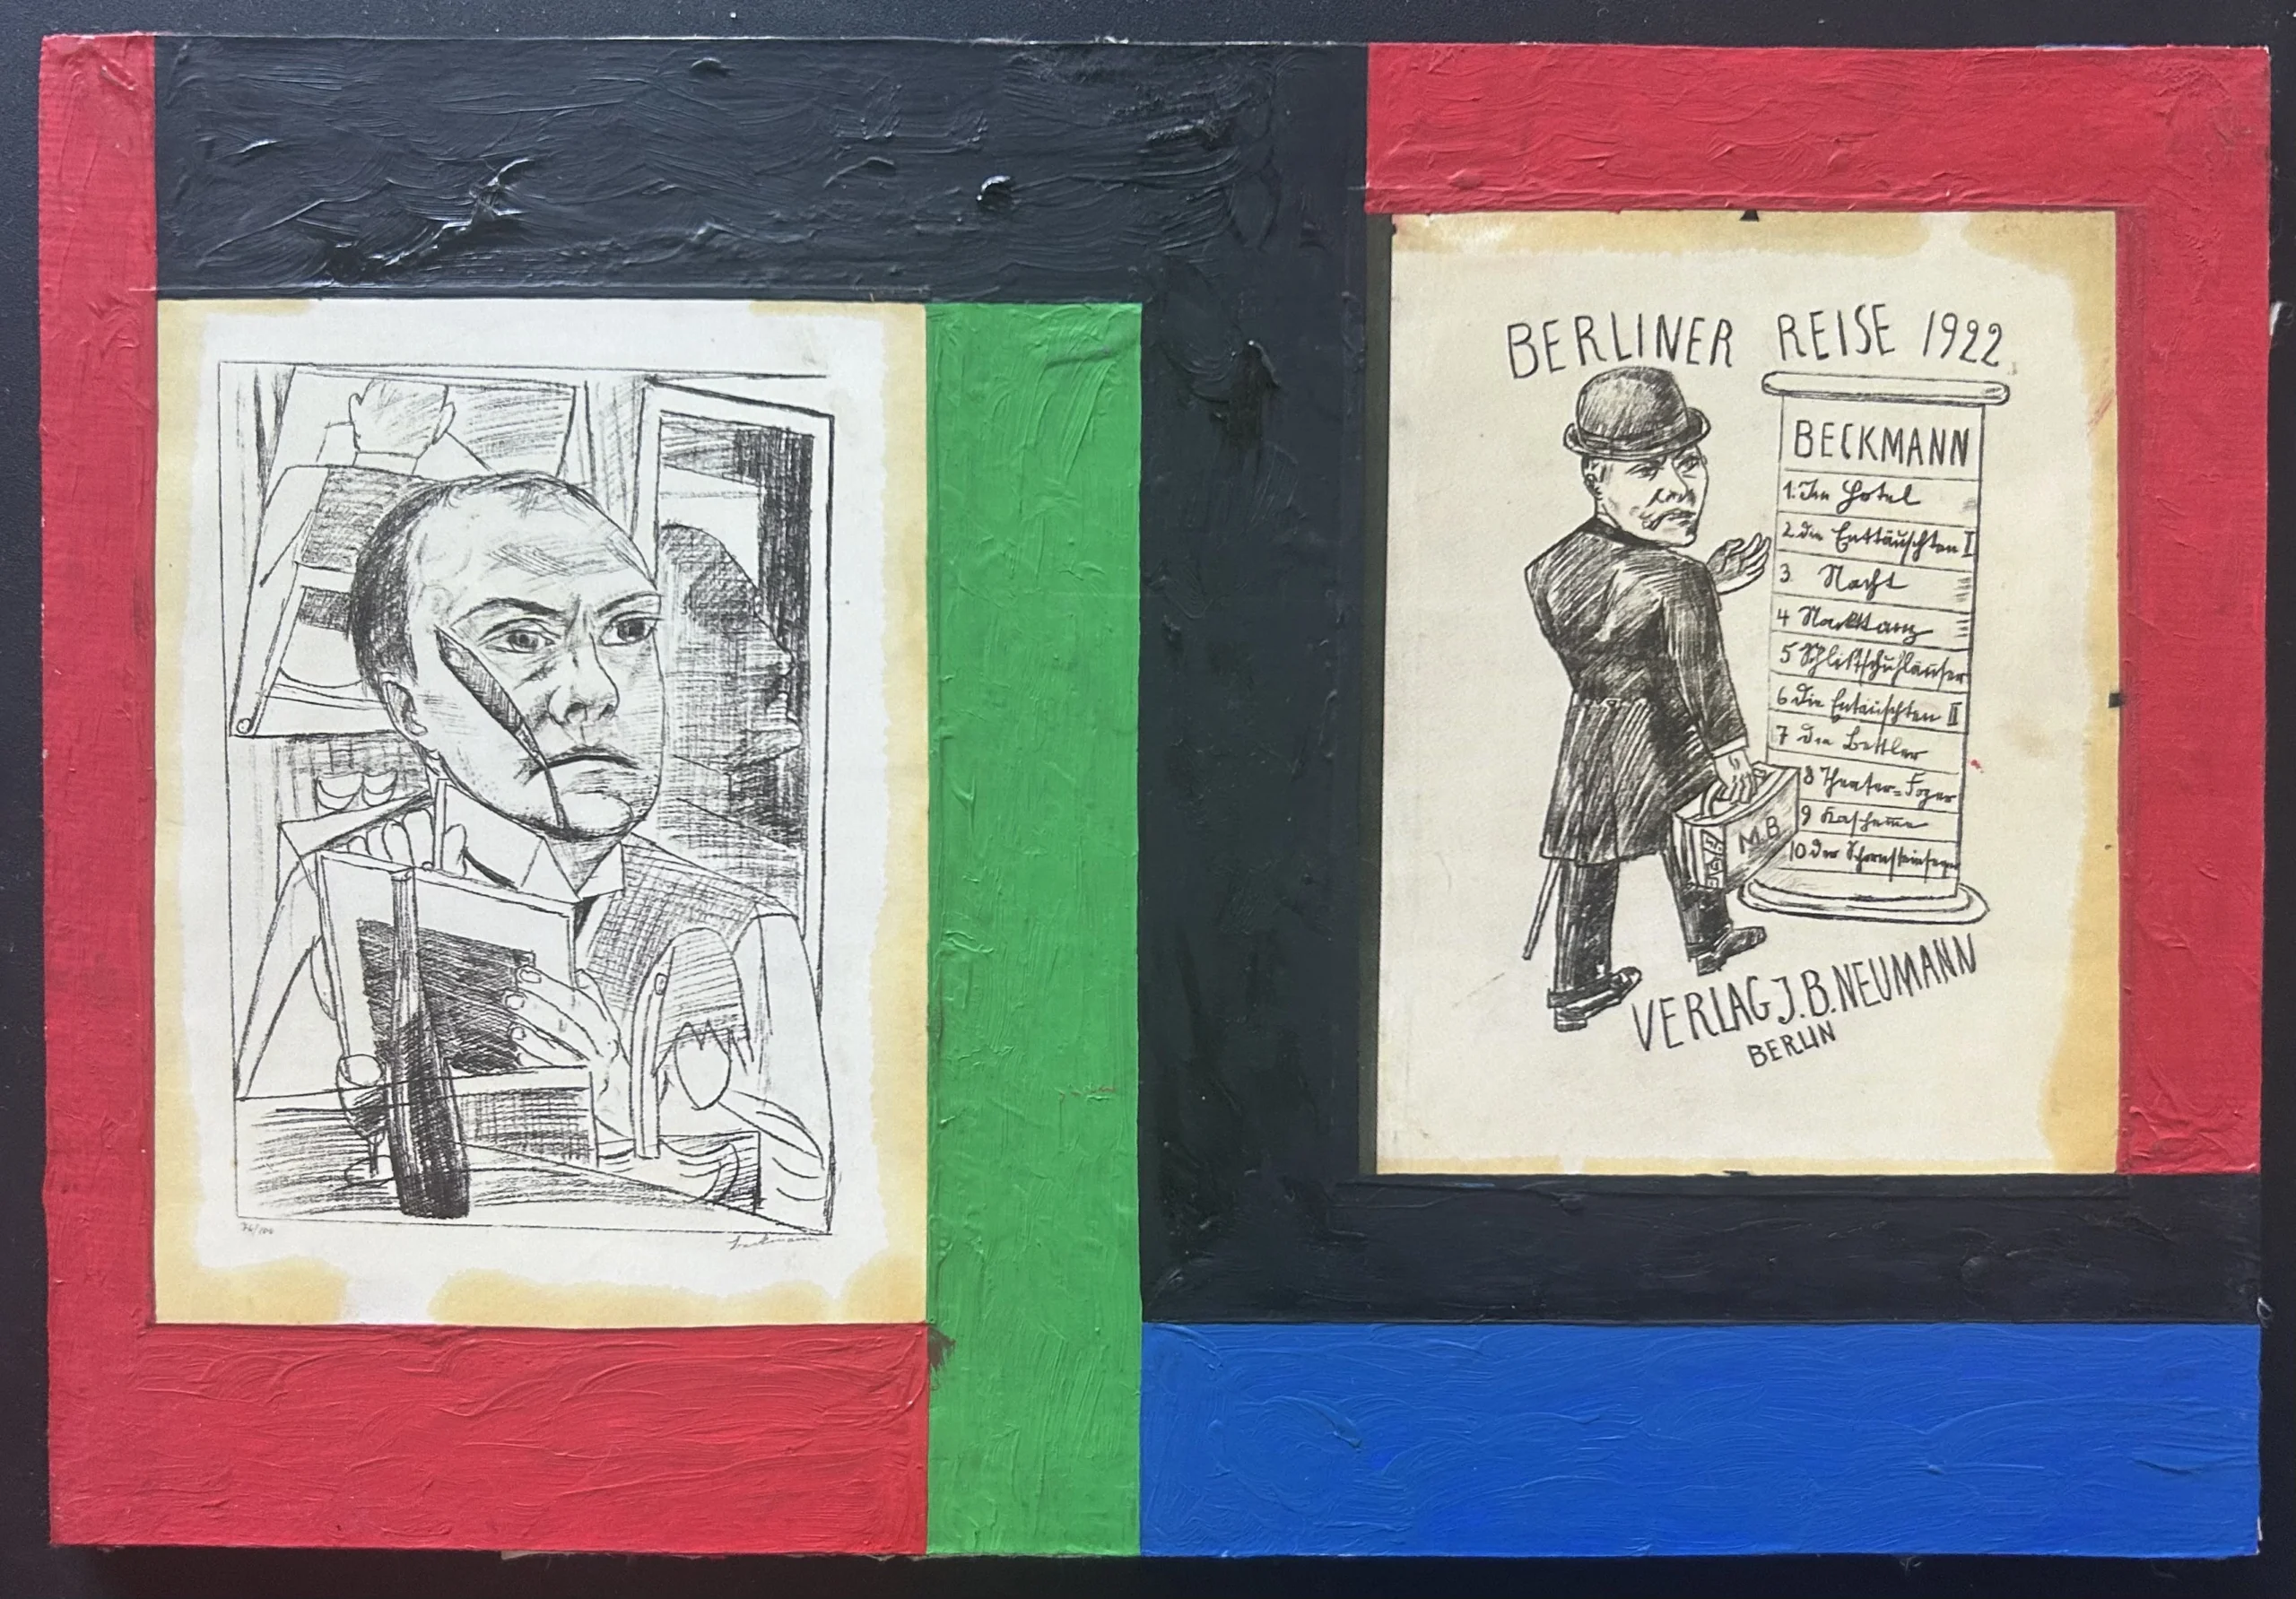 76/100
Beckmann
BERLINER REISE 1922
BECKMANN
1. Im Hotel
2 die Enttäuschten I
3. Nacht
4 Nackttanz
5 Schlittschuhläufer
6 die Entäuschten II
7 die Bettler
8 Theater=Foyer
9 Kascheme
10 der Schornsteinfeger
M.B.
VERLAG J. B. NEUMANN
BERLIN